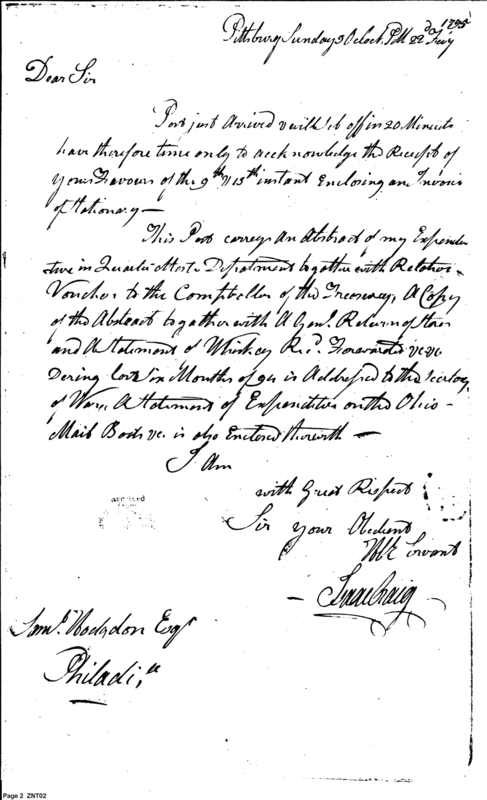 Pittsburg Sunday 3 Oclock PM 22d Feby 1795
Dear Sir
Post just Arrived & will set off in 20 Minuets
have therefore time only to acknowledge the Receipt of
your Favours of the 9th & 13th instant Enclosing an Invoice
of Stationary —
This Post carrys an Abstract of my Expendi
ture in Quarter Masts. Department together with Relative
Voucher to the Comptroller of the Treasury, A Copy
of the Abstract together with A Genl. Return of Stores
and A Statement of Whiskey Recd. Forwarded &c &c
Dering Months of 94 is Addressed to the Secretary
of War, A Statement of Expenditure on the Ohio
Mail Boats &c. is also Enclosed therewith —
I Am
with Great Respect
Sir your Obedient
Hble Servant
Isaac Craig
received
from
Saml. Hodgdon Esqr
Philada.
Page 2 ZNT02